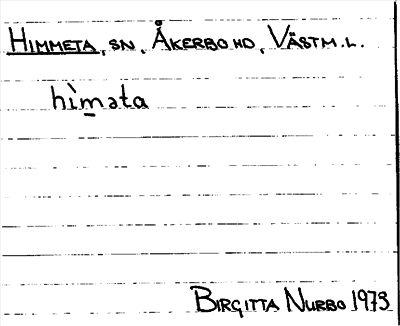 HIMMETA, SN, ÅKERBO HD, VÄSTM.L.
hìm̲əta
BIRGITTA NURBO 1973